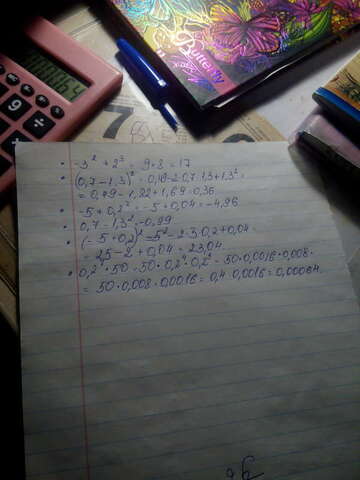 Butterfly
7
• -3² + 2³ = 9+8 = 17
• (0,7-1,3)² = 0,49-2·0,7·1,3+1,3² =
= 0,49-1,82+1,69=0,36
• -5+0,2² = -5+0,04=-4,96
• 0,7-1,3²=-0,99
• (-5+0,2)² = 5²-2·5·0,2+0,04=
= 25-2+0,04=23,04
• 0,2⁴·50=50·0,2⁴·0,2³=50·0,0016·0,008=
= 50·0,008·0,0016=0,4·0,0016=0,00064